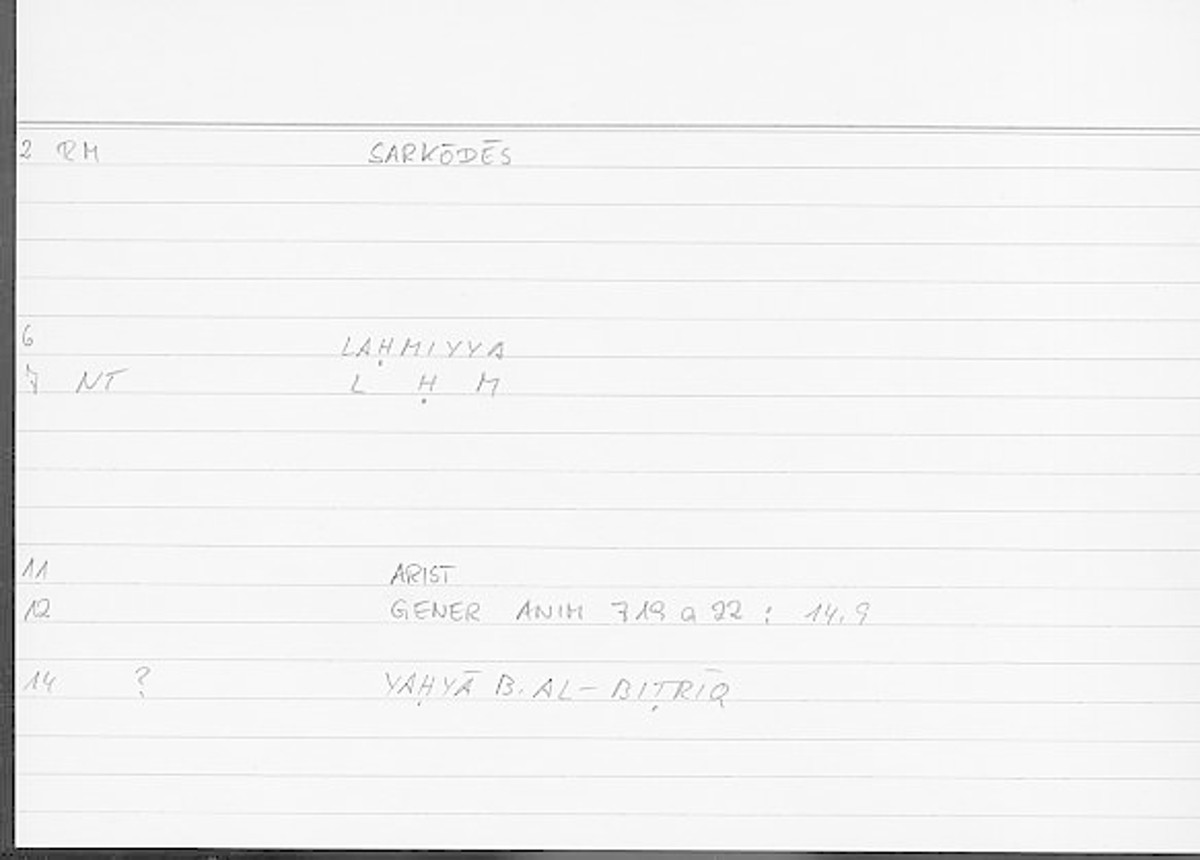 2 RM SARKŌDĒS
6 LAḤMIYYA
7 NT L Ḥ M
11 ARIST
12 GENER ANIM 719 a 22 : 14.9
14 ? YAḤYĀ B. AL-BIṬRĪQ